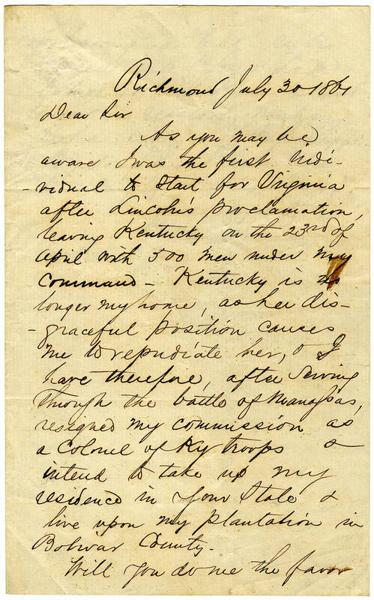 Richmond July 30 1861
Dear Sir
As you may be
aware I was the first indi-
-vidual to start for Virginia
after Lincoln's proclamation,
leaving Kentucky on the 23rd of
April with 500 men under my
command – Kentucky is no
longer my home, as her dis-
-graceful position causes
me to repudiate her, & I
have therefore, after serving
through the battle of Manassas,
resigned my commission as
a Colonel of Ky troops &
intend to take up my
residence in your State &
live upon my plantation in
Bolivar County.
Will you do me the favor